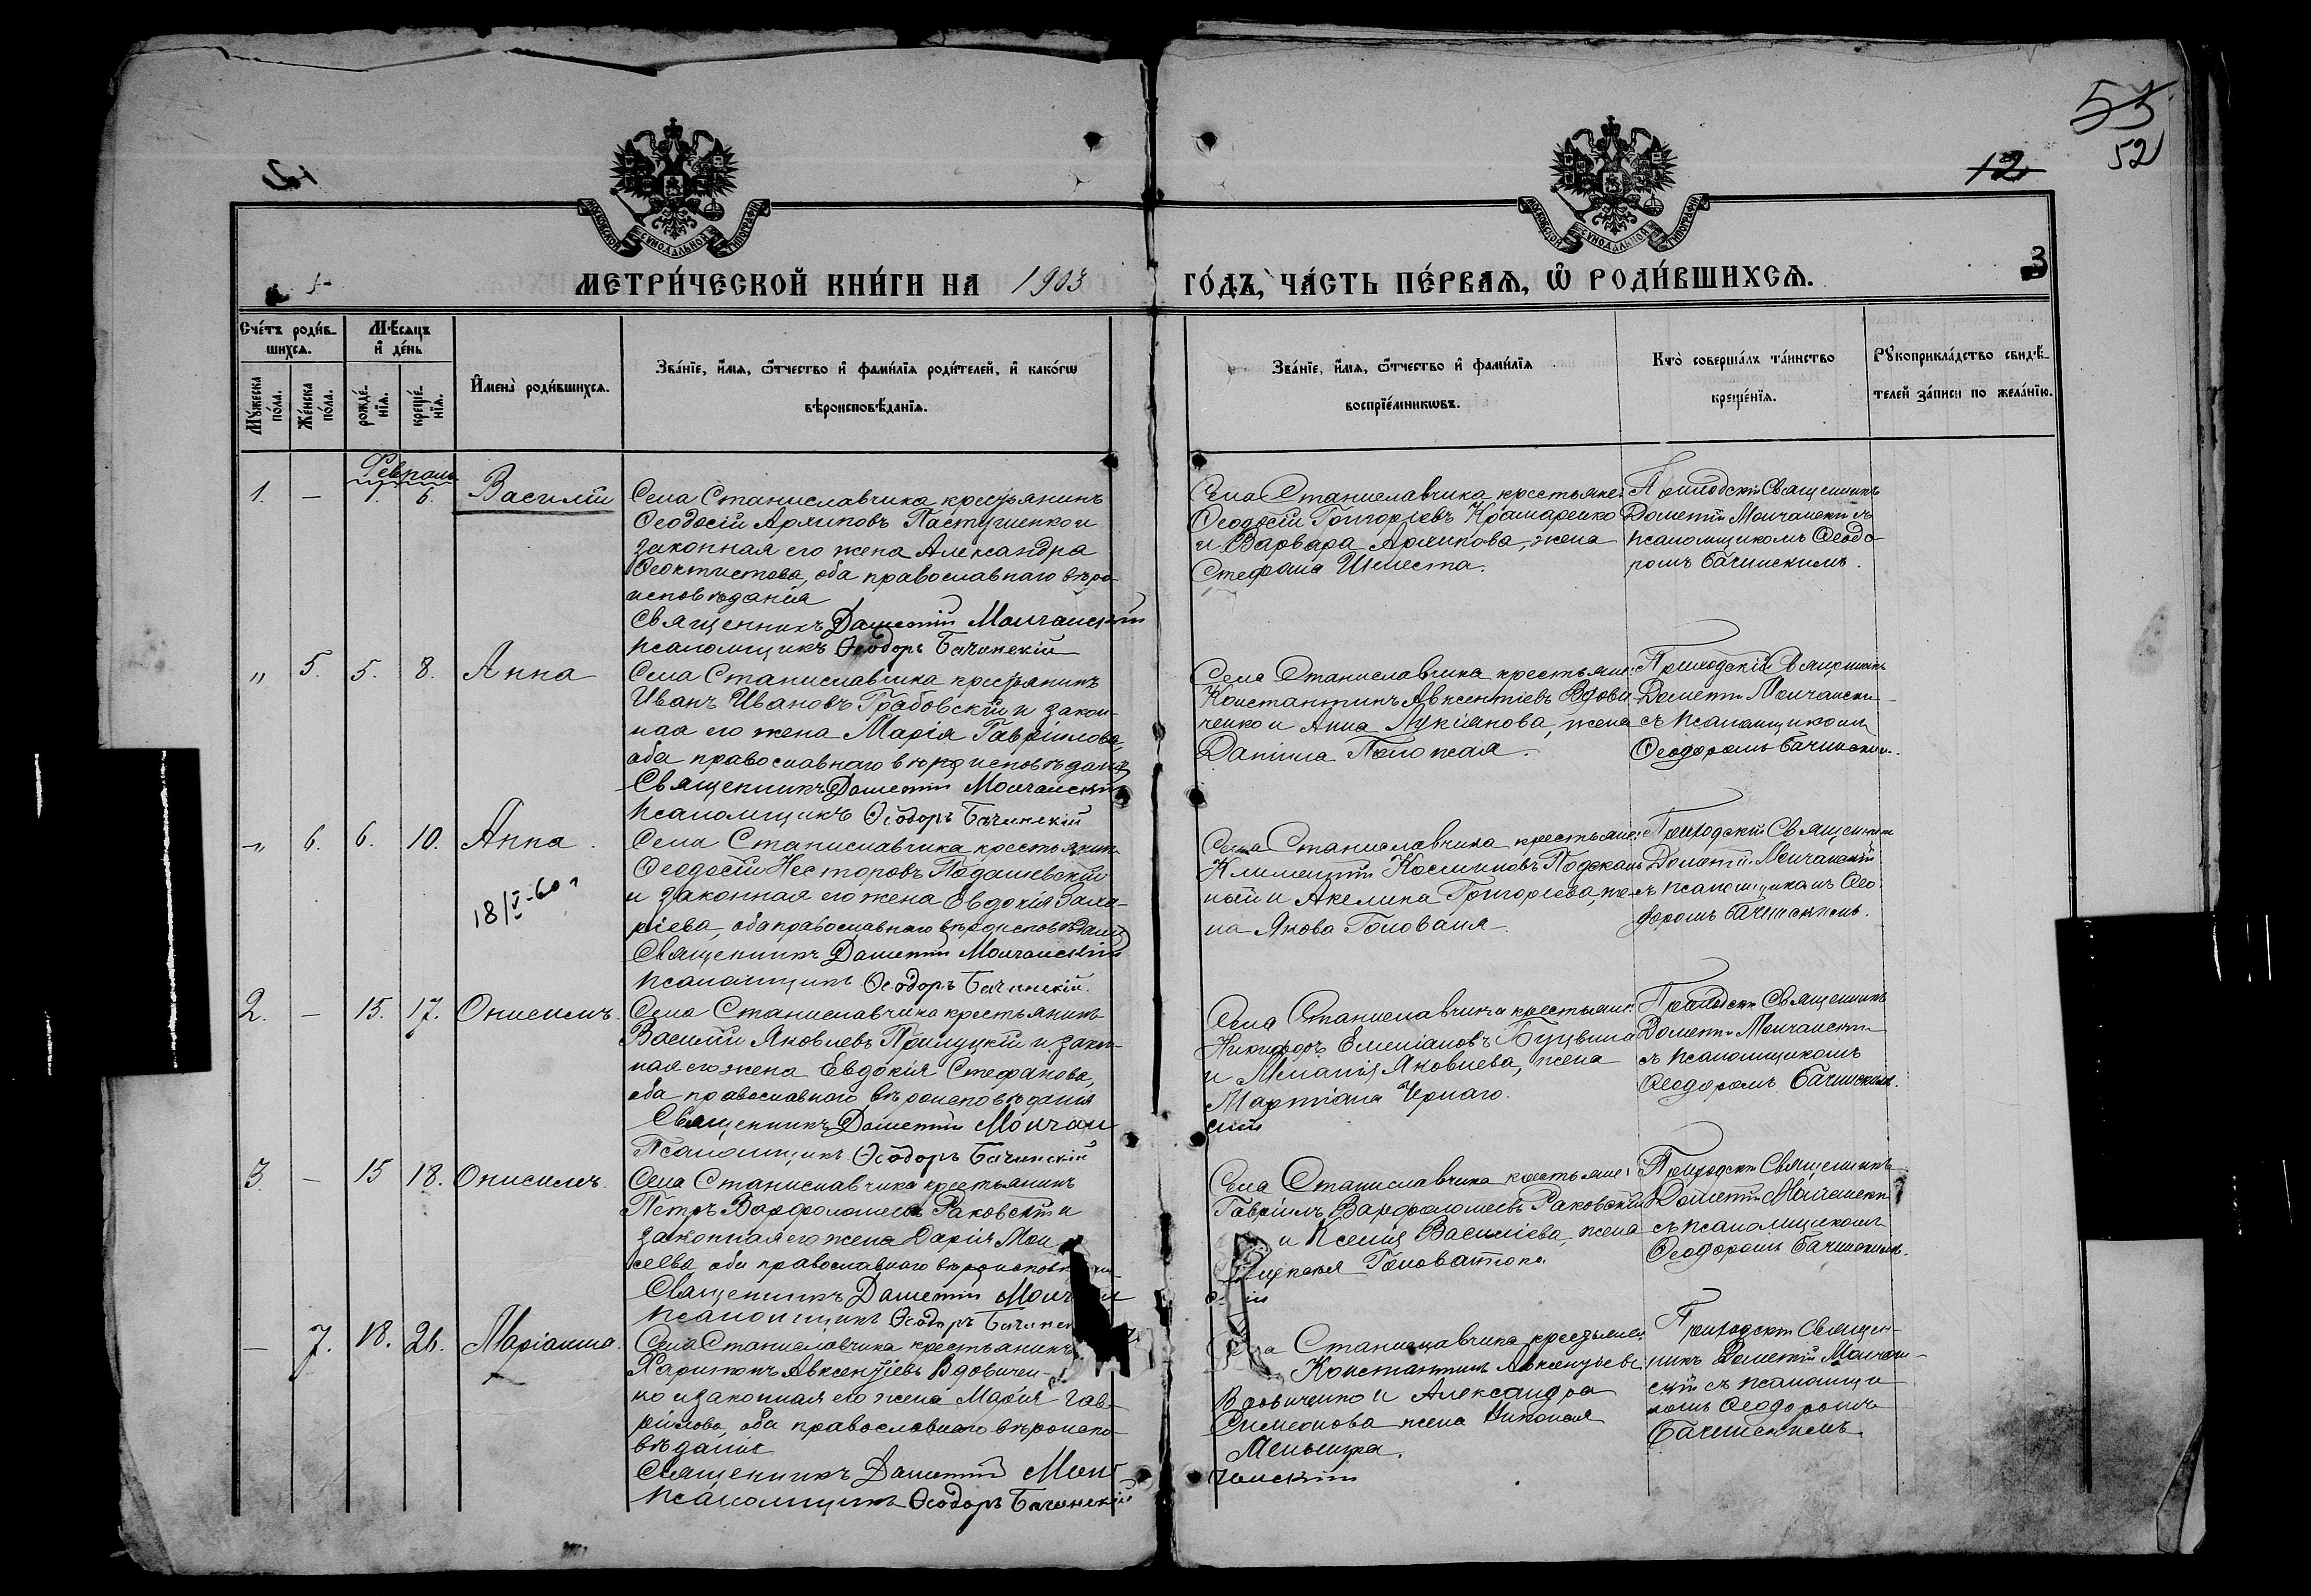 53
52
12
3
МОСКОВСКОЙ СУНОДАЛЬНОЙ ТИПОГРАФІИ
МОСКОВСКОЙ СУНОДАЛЬНОЙ ТИПОГРАФІИ
МЕТРИ́ЧЕСКОЙ КНИ́ГИ НА 1903 ГО́ДЪ, ЧА́СТЬ ПЕ́РВАѦ, Ѽ РОДИ́ВШИХСѦ.
Сче́тъ роди́в-
шихсѧ.
Мѣ́сѧцъ
и҆ де́нь
Мꙋ́жеска по́ла.
Же́нска по́ла.
рожде́нїѧ.
креще́нїѧ.
И҆мена̀ роди́вшихсѧ.
Зва́нїе, и҆́мѧ, ѻ҆́тчество и҆ фами́лїѧ роди́телей, и҆ како́гѡ
вѣроисповѣ́данїѧ.
Зва́нїе, и҆́мѧ, ѻ҆́тчество и҆ фами́лїѧ
воспрїе́мникѡвъ.
Кто̀ соверша́лъ та́инство
креще́нїѧ.
Рꙋкоприкла́дство свидѣ́-
телей за́писи по жела́нїю.
Февраль
1. – 1. 6. Василій
Села Станиславчика крестьянинъ
Ѳеодосій Архиповъ Пастушенко и
законная его жена Александра
Ѳеоктистова, оба православнаго вѣро-
исповѣданія
Священникъ Дометій Молчанскій
псаломщикъ Ѳеодоръ Бачинскій
Села Станиславчика крестьяне:
Ѳеодосій Григоріевъ Крамаренко
и Варвара Архипова, жена
Стефана Шелеста.
Приходскій Священникъ
Дометій Молчанскій съ
псаломщикомъ Ѳеодо-
ромъ Бачинскимъ.
" 5. 5. 8. Анна
Села Станиславчика крестьянинъ
Иванъ Ивановъ Грабовскій и закон-
ная его жена Марія Гавріилова,
оба православнаго вѣроисповѣданія
Священникъ Дометій Молчанскій
псаломщикъ Ѳеодоръ Бачинскій
Села Станиславчика крестьяне:
Константинъ Авксентіевъ Вдови-
ченко и Анна Лукіанова, жена
Даніила
Приходскій Священникъ
Дометій Молчански-
съ псаломщикомъ
Ѳеодоромъ Бачинским.
-" 6. 6. 10. Анна.
18/V-60 г
Села Станиславчика крестьянин
Ѳеодосій Несторовъ Подашевскій
и законная его жена Евдокія Заха-
ріева, оба православнаго вѣроисповѣданія
Священникъ Дометій Молчанскій
псаломщикъ Ѳеодоръ Бачинскій.
Села Станиславчика крестьяне:
Климентій
и Акелина Григоріева, же-
на Якова Голованя.
Приходскій Священникъ
Дометій Молчанскій
съ псаломщикомъ Ѳео-
доромъ Бачинскимъ.
2. – 15. 17. Онисимъ.
Села Станиславчика крестьянинъ
Василій Яковлевъ Прилуцкій и закон-
ная его жена Евдокія Стефанова,
оба православнаго вѣроисповѣданія
Священникъ Дометій Молчан
Псаломщикъ Ѳеодоръ Бачинскій
Села Станиславчика крестьяне:
Никифоръ Емеліановъ
и Меланія Яковлева, жена
Мартіана Чернаго.
скій
Приходскій Священникъ
Дометій Молчанскій
съ псаломщикомъ
Ѳеодоромъ Бачинскимъ.
3. – 15 18. Онисимъ.
Села Станиславчика крестьянинъ
Петръ Варфоломеевъ Раковскій и
законная его жена Дарія Мои
сеева, оба православнаго
Священникъ Дометій
псаломщикъ Ѳеодоръ
Села Станиславчика крестьяне:
Гавріилъ Варфоломеевъ Раковскій
и Ксенія Василіева, жена
Головатюка
Приходскій Священникъ
Дометій
съ псаломщикомъ
Ѳеодоромъ Бачинскимъ.
– 7. 18. 21. Маріанна.
Села Станиславчика крестьянинъ
Харитонъ Авксентіевъ Вдовичен-
ко и законная его жена Марія Гав-
ріилова, оба православнаго вѣроиспо-
вѣданія
Священникъ Дометій Мол
псаломщикъ Ѳеодоръ Бачинскій
Станиславчика крестьяне:
Константинъ Авксентіевъ
Вдовиченко и Александра
Симеонова жена Николая
чанскій
Приходскій Священ-
никъ Дометій Молчан-
скій съ псаломщи
комъ Ѳеодоромъ
Бачинскимъ.